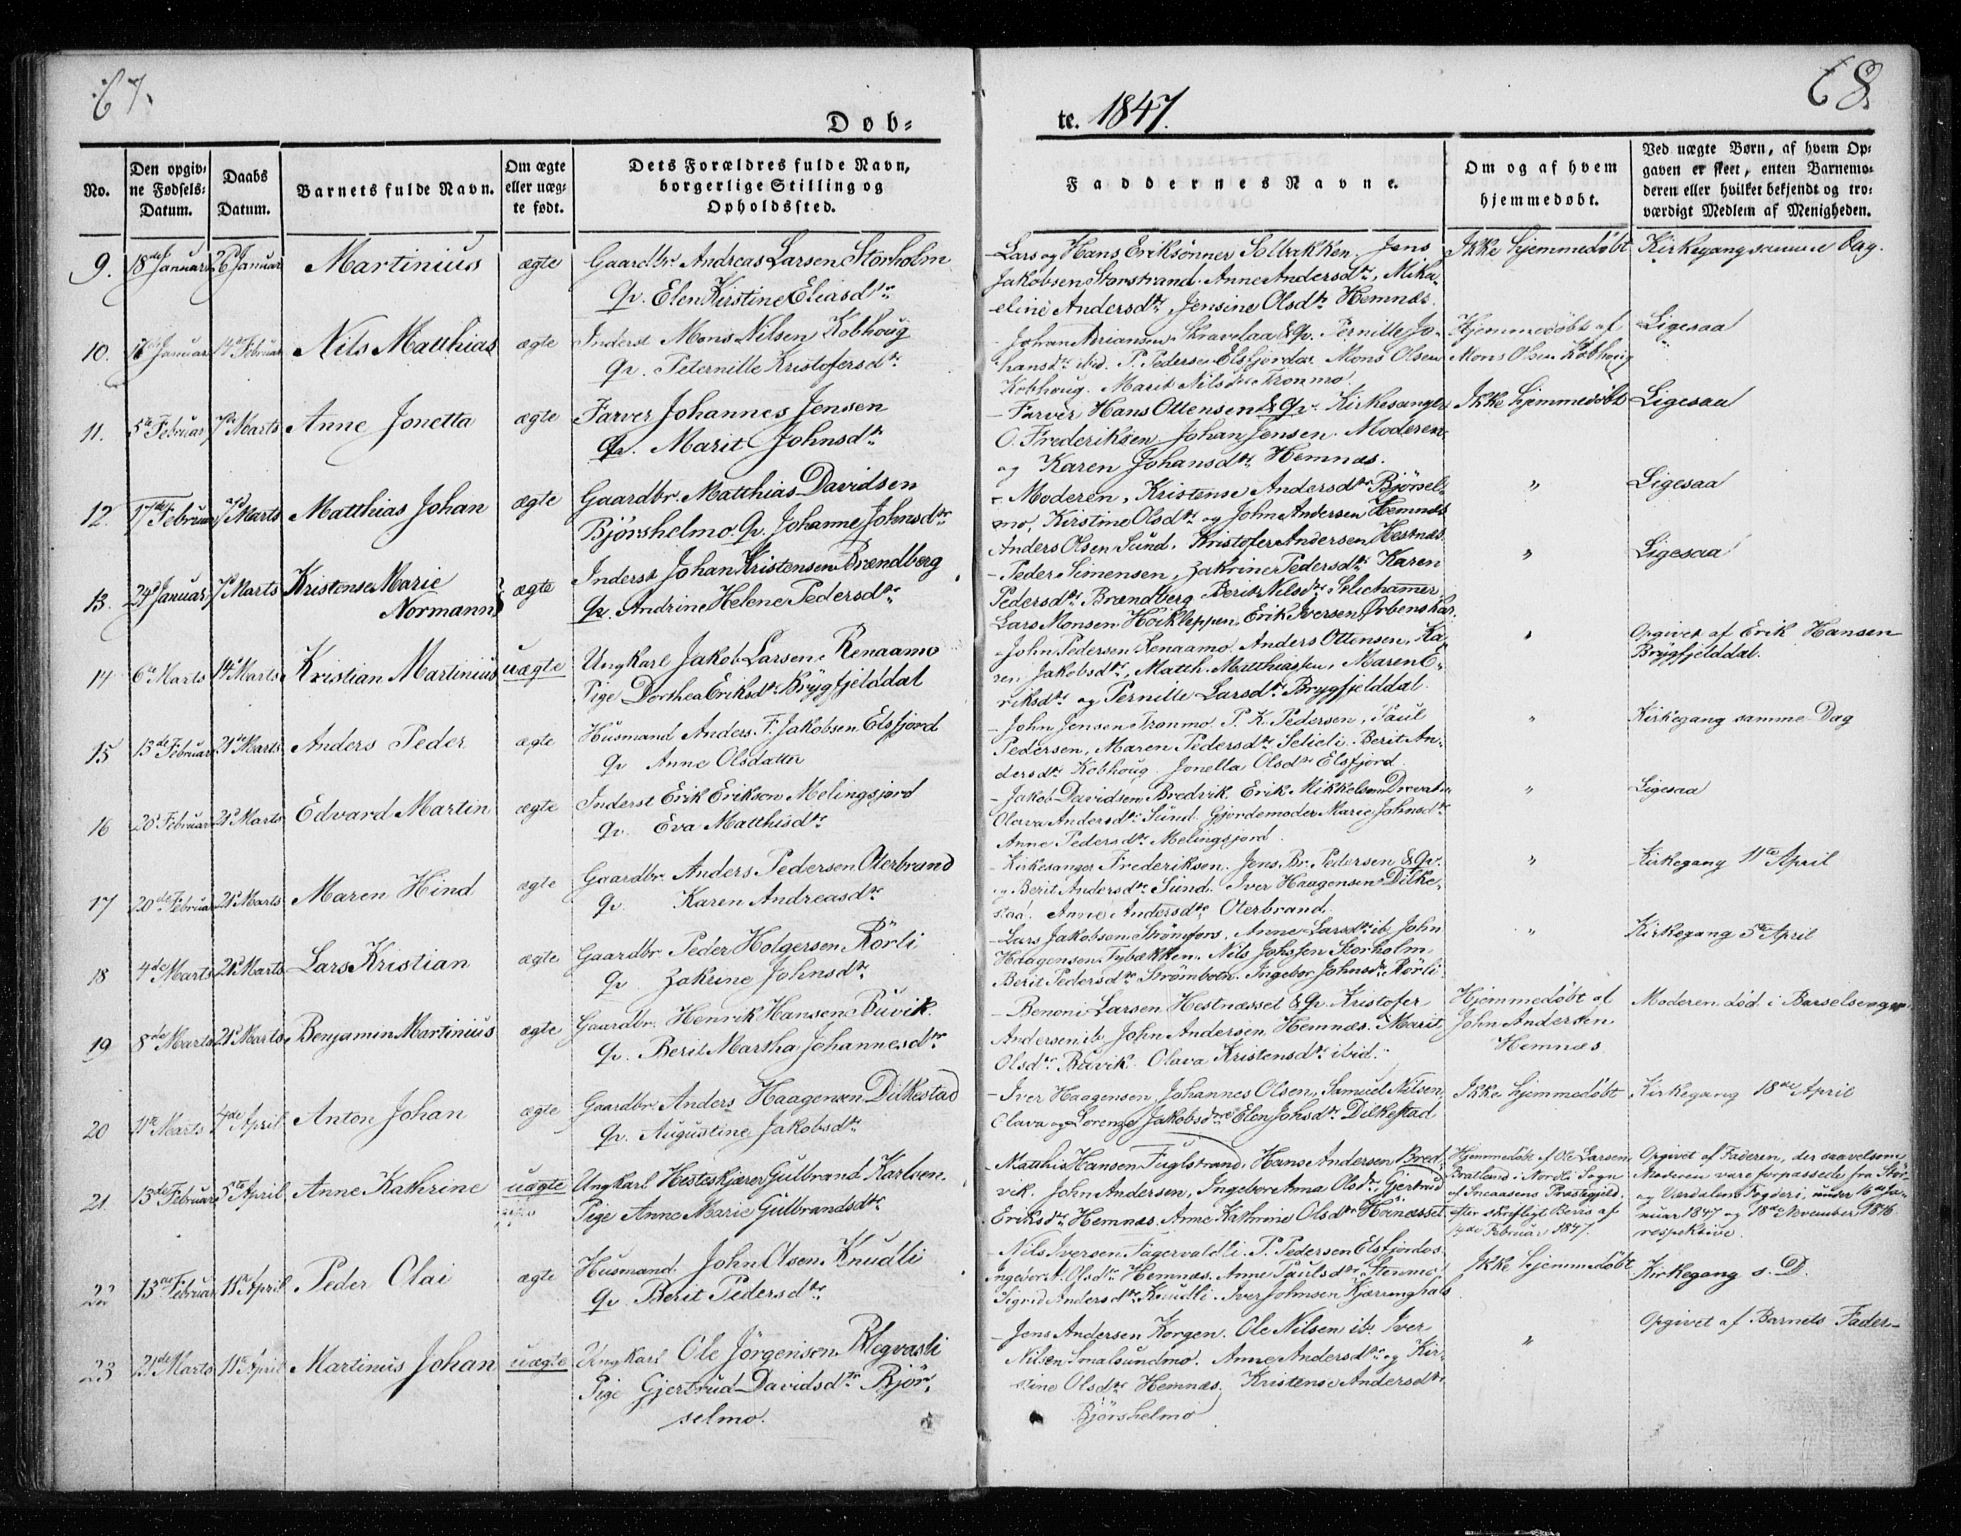 67.
68.
Døb-
te. 1847.
No.
Den opgiv-
ne Fødsels-
Datum.
Daabs
Datum.
Barnets fulde Navn.
Om ægte
eller uæg-
te født.
Dets Forældres fulde Navn,
borgerlige Stilling og
Opholdssted.
Faddernes Navne.
Om og af hvem
hjemmedøbt.
Ved uægte Børn, af hvem Op-
gaven er skeet, enten Barnemo-
deren eller hvilket bekjendt og tro-
værdigt Medlem af Menigheden.
9. 18de Januar 26 Januar Martinius ægte
Gaardbr. Andreas Larsen Storholm
Qv. Elen Kirstine Eliasdtr
Lars og Hans Eriksønner Solbakken. Jens
Jakobsen Storstrand. Anne Andersdtr, Mika-
eline Andersdtr, Jensine Olsdtr Hemnæs.
Ikke hjemmedøbt
Kirkegang samme Dag.
10. Januar 14de Februar Nils Matthias ægte
Inderst Mons Nilsen Kobhoug
Qv. Peternille Kristofersdtr
Johan Arriansen &Qv. Pernille Jo-
hansdtr ibid. P. Pedersen Elsfjordar Mons Olsen
Kobhoug. Marit Nilsdtr Tronmo.
Hjemmedøbt af
Mons Olsen Kobhoug
Ligesaa
11. 5te Februar 7de Marts Anne Jonetta ægte
Farver Johannes Jensen
Qv. Marit Johnsdtr
Farver Hans Ottensen &Qv. Kirkesanger
O. Frederiksen Johan Jensen. Moderen
og Karen Johansdtr Hemnæs.
Ikke hjemmedøbt
Ligesaa
12. 17de Februar 7de Marts Matthias Johan ægte
Gaardbr. Matthias Davidsen
Bjørshelmo. Qv. Johanne Johnsdtr
Moderen, Kristense Andersdtr Bjørsel-
mo, Kirstine Olsdtr og John Andersen Hemnæs
Anders Olsen Sund. Kristofer Andersen Hestnæs.
"
Ligesaa
13. 24de Januar 7de Marts Kristense Marie
Normann ægte
Inderst Johan Kristensen Brændberg
Qv. Andrine Helene Pedersdtr
Peder Simensen, Zakrine Pedersdtr Karen
Pedersdtr Brændberg Berit Nilsdtr
Lars Monsen Høikleppen, Erik Iversen
"
Ligesaa
14 6te Marts 14de Marts Kristian Martinius uægte
Ungkarl Jakob Larsen Renaamo
Pige Dorthea Eriksdtr Brygfjelddal
John Pedersen Renaamo. Anders Ottensen, Ka-
ren Jakobsdtr, Matth. Matthiassen, Maren E-
riksdtr og Pernille Larsdtr Brygfjelddal.
"
Opgivet af Erik Hansen
Brygfjelddal.
15 13de Februar 21de Marts Anders Peder ægte
Husmand Anders F. Jakobsen Elsfjord
Qv Anne Olsdatter
John Jensen Tronmo. P. K. Pedersen, Paul
Pedersen, Maren Pedersdtr Berit An-
dersdtr Kobhoug. Jonella Olsdtr Elsfjord.
"
Kirkegang samme Dag
16 20de Februar 21de Marts Edvard Martin ægte
Inderst Erik Erikson Melingsjord
Qv. Eva Matthisdtr
Jakob Davidsen Bredvik Erik Mikkelsen
Olava Andersdtr Sund. Gjordemoder Marie Johnsdtr
Anne Pedersdtr Melingsjord
"
Ligesaa
17 20de Februar 21de Marts Maren Hind ægte
Gaardbr. Anders Pedersen Oterbrand
Qv. Karen Andreasdtr
Kirkesanger Frederiksen. Jens Br. Pedersen &Qv.
og Berit Andersdtr Sund. Iver Haagensen Dilke-
stad. Anne Andersdtr Oterbrand.
"
Kirkegang 11te April
18 4de Marts 21de Marts Lars Kristian ægte
Gaardbr. Peder Holgersen Rörli
Qv. Zakrine Johnsdtr
Lars Jakobsen Strømfors, Anne Larsdtr ib. John
Haagensen Nils Johnsen Storholm
Berit Pedersdtr Strømbotn. Ingebor Johnsdtr Rörli
"
Kirkegang 5te April
19 8de Marts 21de Marts Benjamin Martinius ægte
Gaardbr. Henrik Hansen Buvik
Qv. Berit Martha Johannesdtr
Benoni Larsen Hestnæsset &Qv. Kristofer
Andersen ib John Andersen Hemnæs. Marit
Olsdtr Buvik. Olava Kristensdtr ibid.
Hjemmedøbt af
John Andersen
Hemnæs
Moderen død i Barselsengen
20 11te Marts 4de April Anton Johan ægte
Gaardbr. Anders Haagensen Dilkestad
Qv. Augustine Jakobsdtr
Iver Haagensen, Johannes Olsen, Samuel Nilsen,
Olava og Lorenze Jakobsdtre Elen Johsdtr Dilkestad
Ikke hjemmedøbt
Kirkegang 18de April
21. 13de Februar 5te April Anne Kathrine uægte
Ungkarl Hesteskjærer Gulbrand Karlsen
Pige Anne Marie Gulbrandsdtr
Matthis Hansen Fuglstrand, Hans Andersen Bred-
vik. John Andersen, Ingebor Anna Olsdtr, Gjertrud
Eriksdtr Hemnæs. Anne Kathrine Olsdtr Høinæsset
Hjemmedøbt af Ole Larsen
Bratland i Nordli Sogn
af Sneaasens Præstegjeld
efter skriftligt Beviis af
Februar 1847.
Opgivet af Faderen, der saavelsom
Moderen vare forpassede fra Stör-
og Værdalens Fogderi, under 16de Ja-
nuar 1847 og 18de November 1846
respektive.
22 13de Februar 11te April Peder Olai ægte
Husmand John Olsen Knudli
Qv. Berit Pedersdtr
Nils Iversen Fagervoldli. P. Pedersen Elsfjordar
Ingebor A. Olsdtr Hemnæs. Anne Paulsdtr
Sigrid Andersdtr Knudli. Iver Johnsen Kjærringhals
Ikke hjemmedøbt
Kirkegang s. D.
23 21de Marts 11te April Martinus Johan uægte
Ungkarl Ole Jörgenson Blegvasli
Pige Gjertrud Davidsdtr Björ-
selmo.
Jens Andersen Korgen. Ole Nilsen ib. Iver
Nilsen Smalsundmo. Anne Andersdtr og Kir-
stine Olsdtr Hemnæs. Kristense Andersdtr
Bjørshelmo
"
Opgivet af Barnets Fader